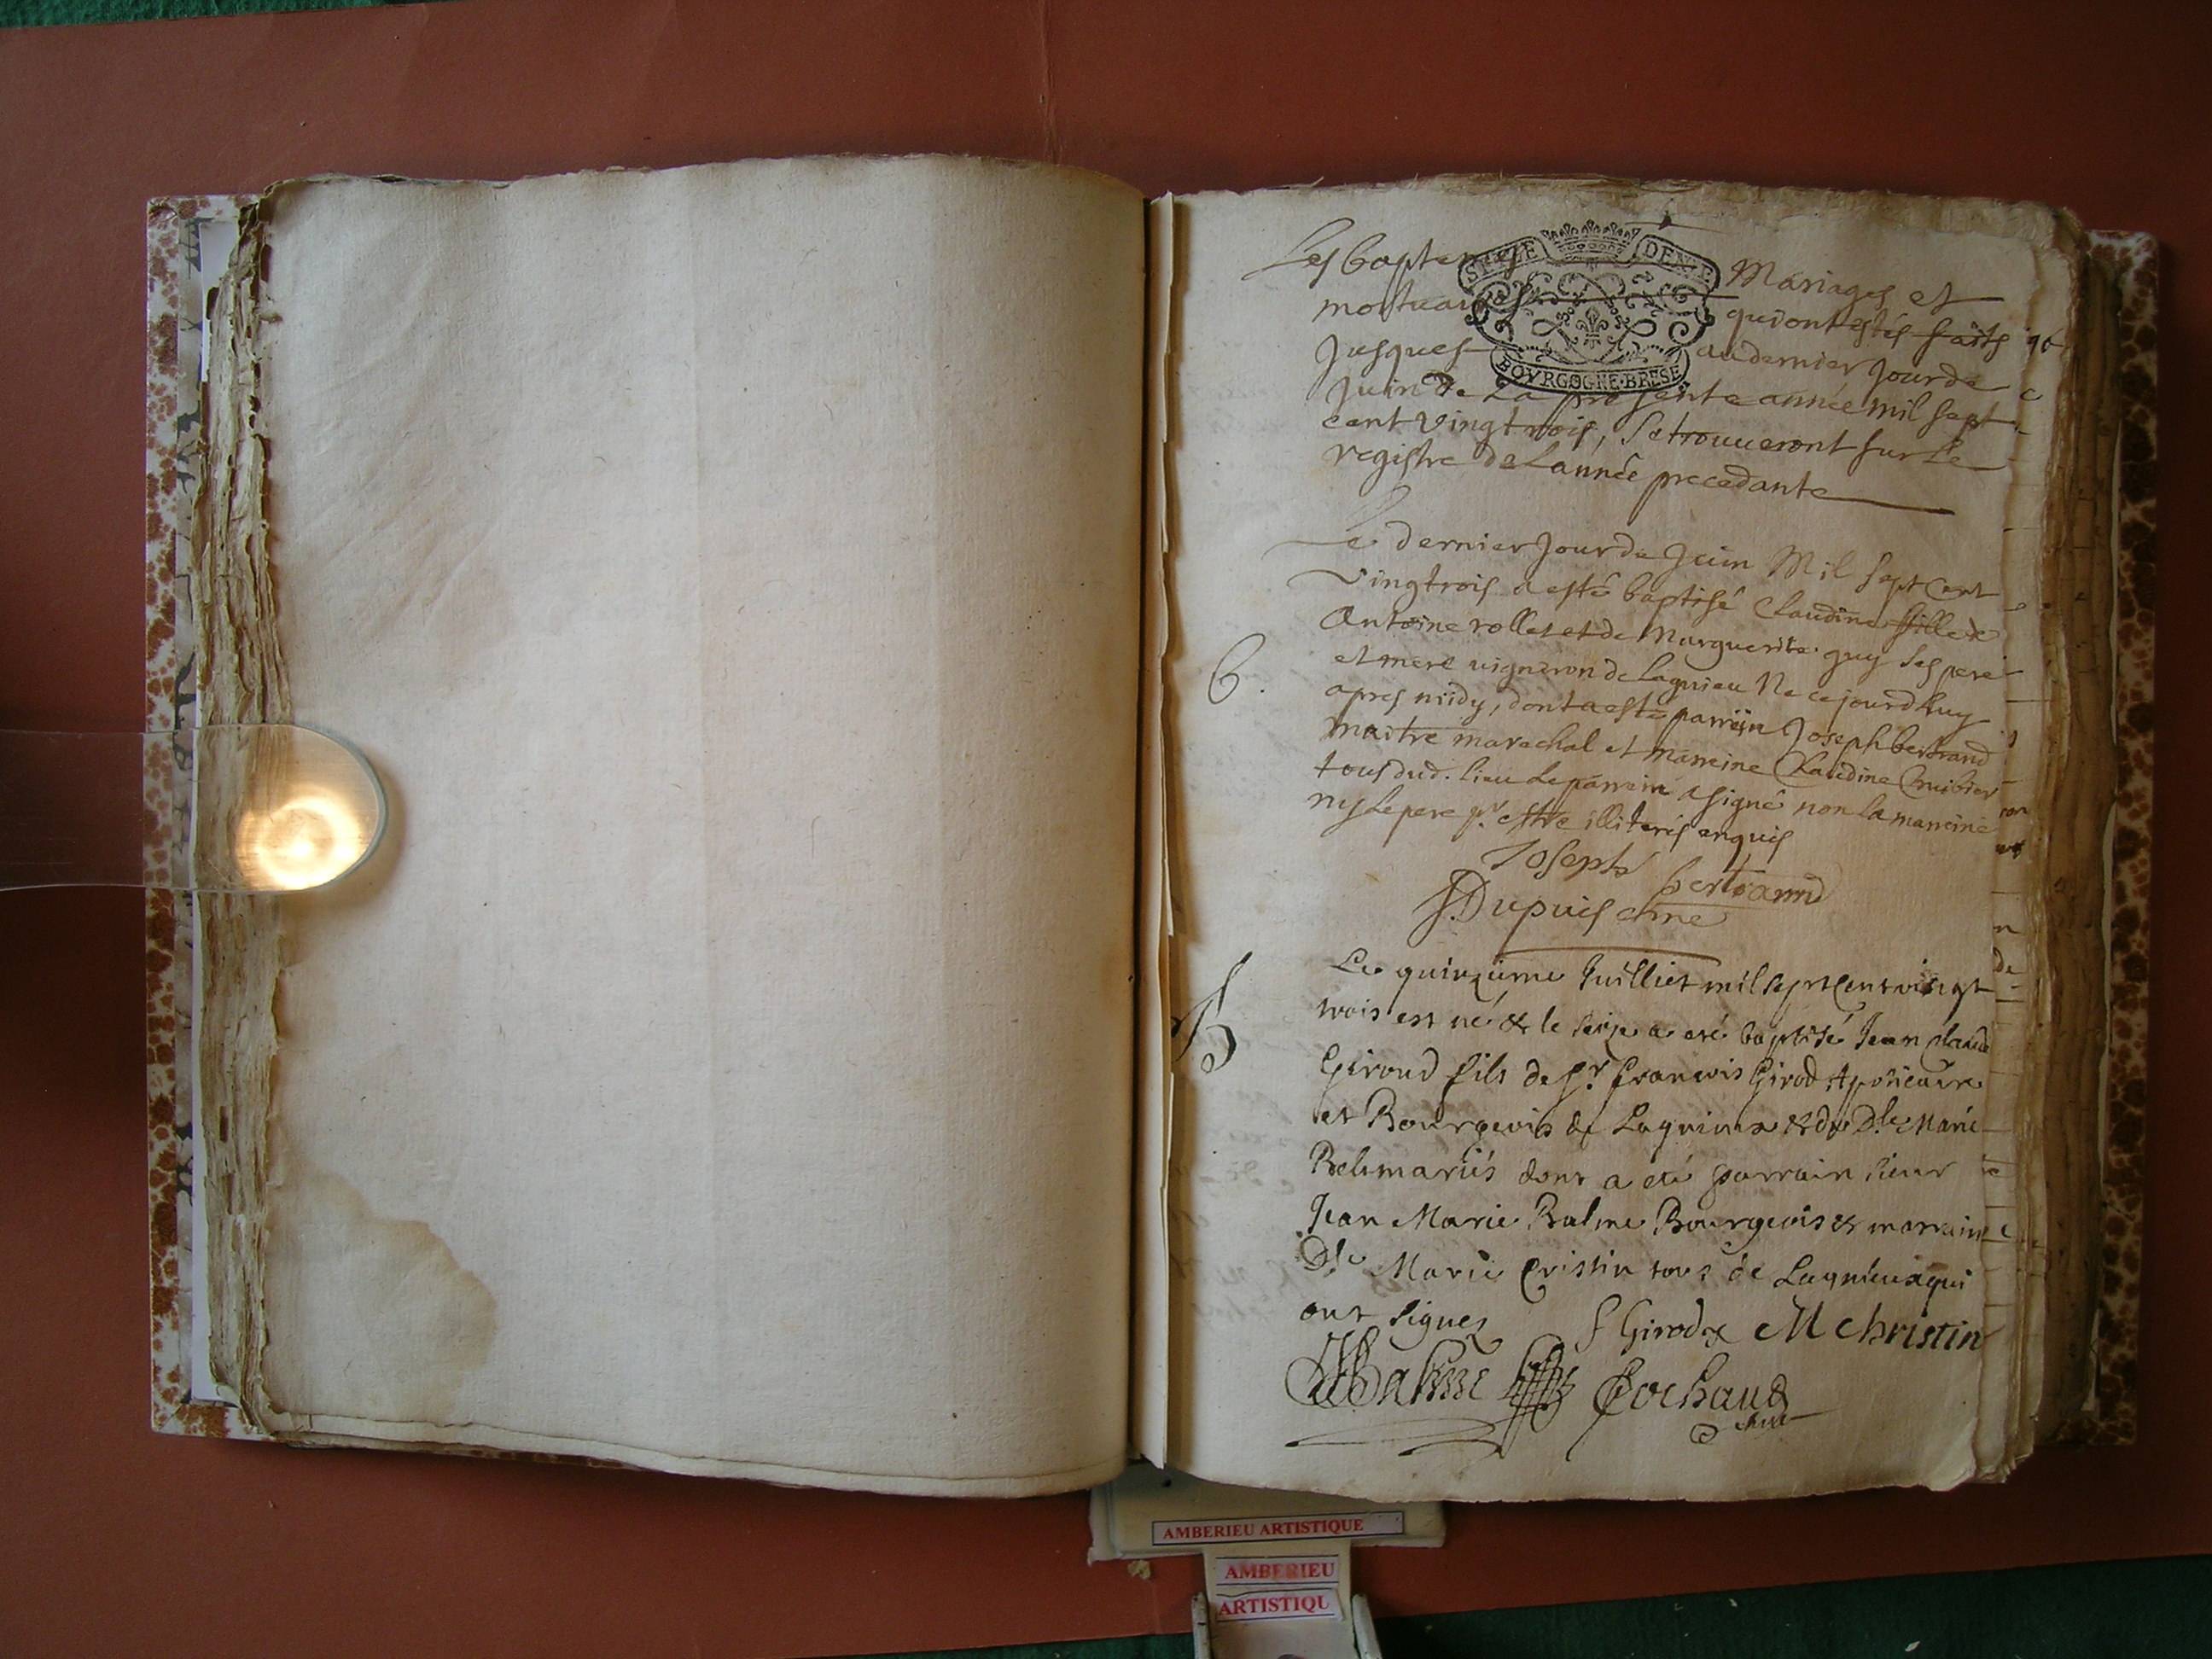 SEIZE DEN.RS
BOURGOGNE·BRESSE
Les baptemes Mariages et
mortuaires qui ont estés faits
Jusques au dernier Jour de
Juin de La presente année mil sept
cent vingt trois, Se trouueront sur Le
registre de L'année precedante
Le dernier Jour de Juin Mil sept Cent
vingtrois a esté baptisé Claudine fille de
Antoine rollet et de Marguerite guy ses pere
et mere vigneron de Lagnieu Ne ce jourdhuy
b.
apres midy, dont a esté parrein Joseph bertrand
maitre marechal et marreine Claudine
tous dud. lieu Le parrein a signé non la marreine
ny Le pere pr. estre illiterés enquis
Joseph bertrand
Dupuis
Le quinzieme Juilliet mil sept Cent vingt
B
trois est né & le seize a eté baptisé Jean claude
Giroud fils de Sr. francois Girod Apoticaire
et Bourgeois de Lagnieux & de Dlle Marie
mariés dont a eté parrain sieur
Jean Marie Balme Bourgeois & marraine
Dlle Marie Cristin tous de Lagnieux qui
ont signez f Girod M christin
Balme Cochaud
AMBERIEU ARTISTIQUE
AMBERIEU
ARTISTIQU